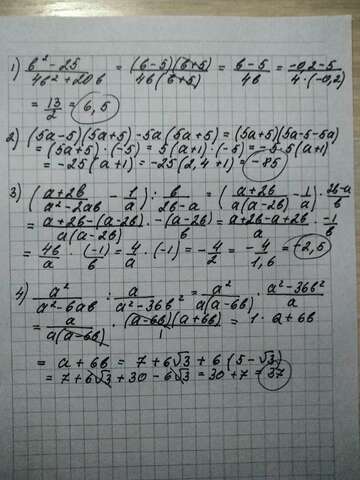 1) (b² - 25)/(4b² + 20b) = ((b-5)(b+5))/(4b(b+5)) = (b-5)/(4b) = (-0,2-5)/(4·(-0,2))
= 13/2 = 6,5
2) (5a-5)(5a+5) - 5a(5a+5) = (5a+5)(5a-5-5a)
= (5a+5)·(-5) = 5(a+1)·(-5) = -5·5(a+1)
= -25(a+1) = -25(2,4+1) = -85
3) ((a+2b)/(a²-2ab) - 1/a) : b/(2b-a) = ((a+2b)/(a(a-2b)) - 1/a) · (2b-a)/b
= (a+2b-(a-2b))/(a(a-2b)) · (-(a-2b))/b = (a+2b-a+2b)/a · (-1)/b
= 4b/a · (-1)/b = 4/a · (-1) = -4/a = -4/1,6 = -2,5
4) a²/(a²-6ab) : a/(a²-36b²) = a²/(a(a-6b)) · (a²-36b²)/a
= a/(a(a-6b)) · ((a-6b)(a+6b))/1 = 1·a+6b
= a + 6b = 7+6√3 + 6(5-√3)
= 7+6√3+30-6√3 = 30+7 = 37